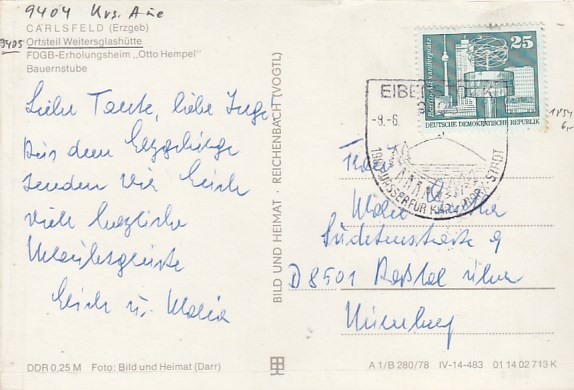 9404 Krs. Aue
CARLSFELD (Erzgeb)
9405 Ortsteil Weitersglashütte
FDGB-Erholungsheim „Otto Hempel"
Bauernstube
Liebe Tante, liebe Inge
Aus dem Erzgebirge
senden wir Euch
viele herzliche
Urlaubsgrüsse
Erich u. Maria
BILD UND HEIMAT · REICHENBACH (VOGTL)
25
DEUTSCHE DEMOKRATISCHE REPUBLIK
EIBENSTOCK
-9.-6.
Südetenstraße 9
D 8501 über
Nürnberg
DDR 0,25 M Foto: Bild und Heimat (Darr)
A 1/B 280/78 IV-14-483 01 14 02 713 K